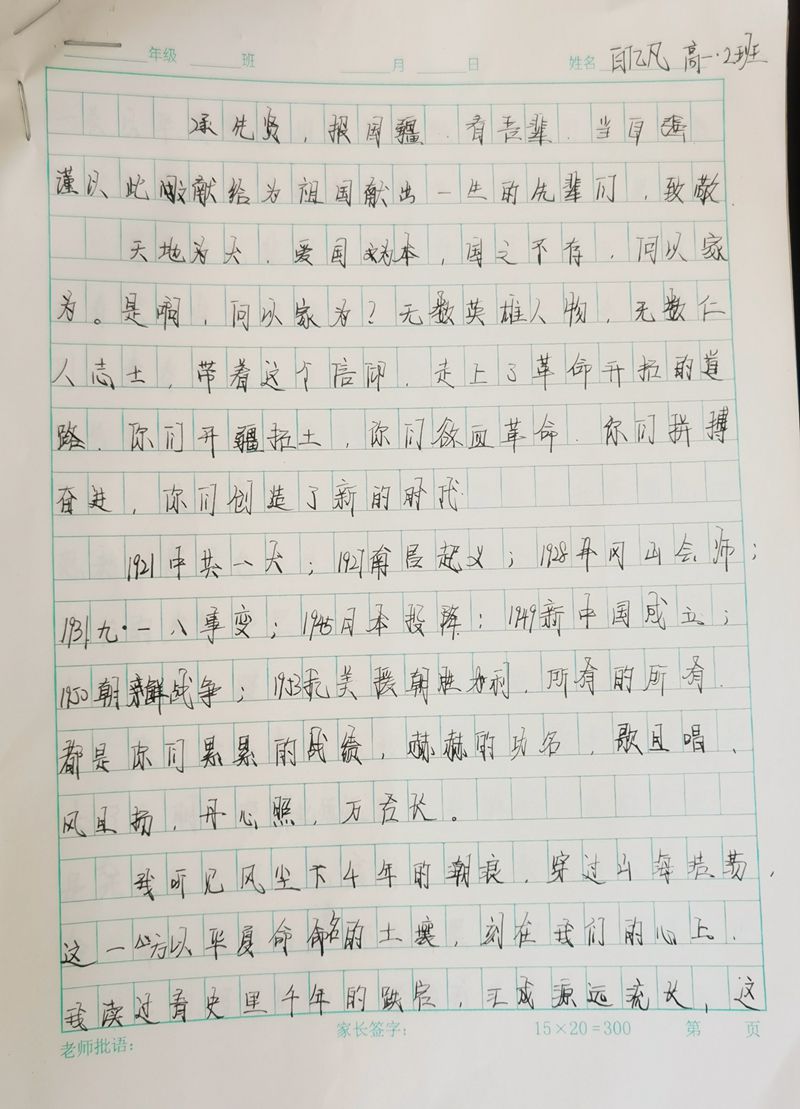 年级 班 月 日 姓名 白忆凡 高一·2班
承先贤，报国疆，有吾辈，当自强
谨以此文献给为祖国献出一生的先辈们，致敬
天地为大，爱国为本，国之不存，何以家
为。是啊，何以家为？无数英雄人物，无数仁
人志士，带着这个信仰，走上了革命开拓的道
路，你们开疆拓土，你们浴血革命，你们拼搏
奋进，你们创造了新的时代
1921中共一大；1927南昌起义；1928井冈山会师；
1931九·一八事变；1945日本投降；1949新中国成立；
1950朝鲜战争；1953抗美援朝胜利，所有的所有，
都是你们累累的战绩，赫赫的功名，歌且唱，
风且扬，丹心照，万古长。
我听见风尘下千年的潮浪，穿过山海浩荡，
这一方以华夏命名的土壤，刻在我们的心上，
我读过青史里千年的跌宕，汇成源远流长，这
老师批语： 家长签字： 15×20=300 第 页